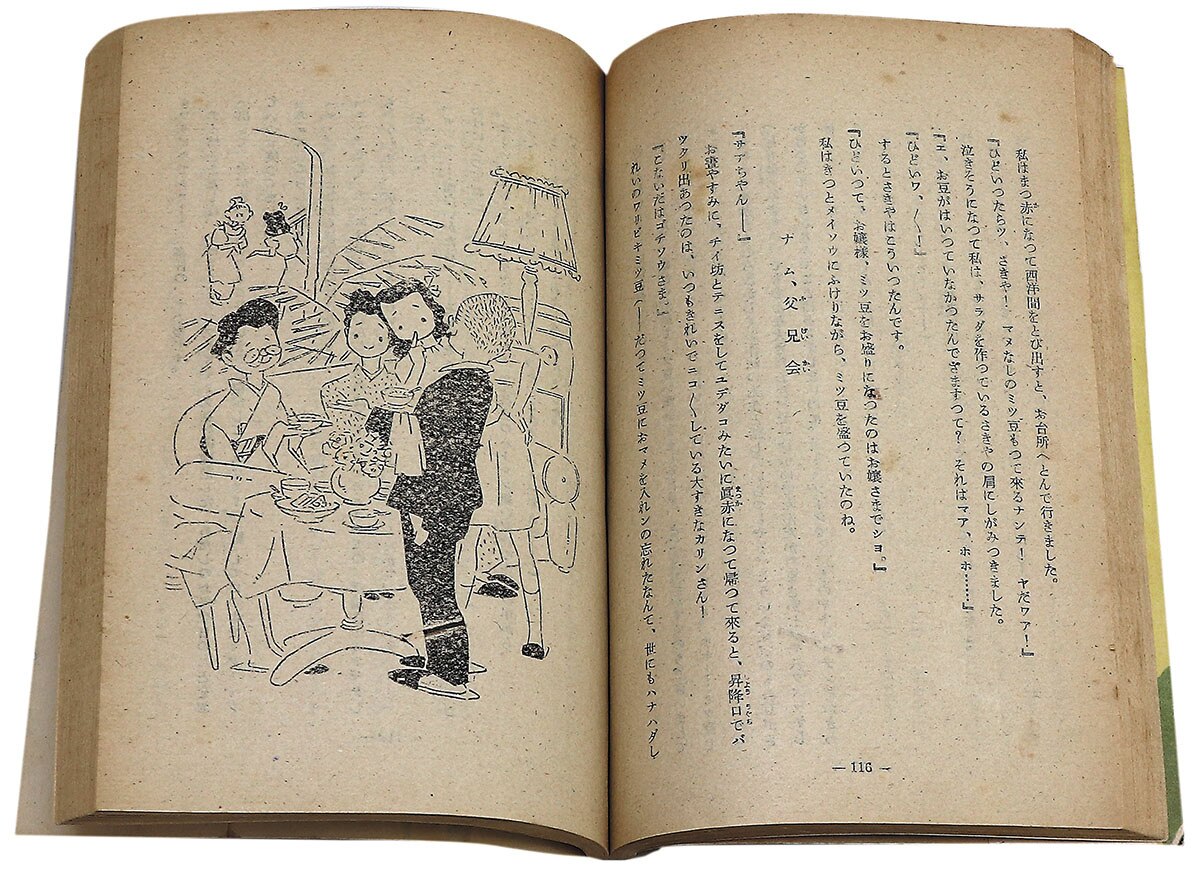 私はまつ赤になつて西洋間をとび出すと、お台所へとんで行きました。
『ひどいつたらツ、さきや！ マメなしのミツ豆もつて來るナンテ！ ヤだワア！』
泣きそうになつて私は、サラダを作つているさきやの肩にしがみつきました。
『エ、お豆がはいつていなかつたんでざますつて？ それはマア、ホホ……』
『ひどいワ、〱！』
するとさきやはこういつたんです。
『ひどいつて、お嬢様、ミツ豆をお盛りになつたのはお嬢さまでショ。』
私はきつとメイソウにふけりながら、ミツ豆を盛つていたのね。
ナム、父兄会
『サアちやん――』
お晝やすみに、チイ坊とテニスをしてユデダコみたいに眞赤になつて帰つて來ると、昇降口でバ
ツタリ出あつたのは、いつもきれいでニコ〱している大すきなカリンさん！
『こないだはゴチソウさま。』
れいのワリビキミツ豆（――だつてミツ豆におマメを入れンの忘れたなんて、世にもハナハダし
― 116 ―